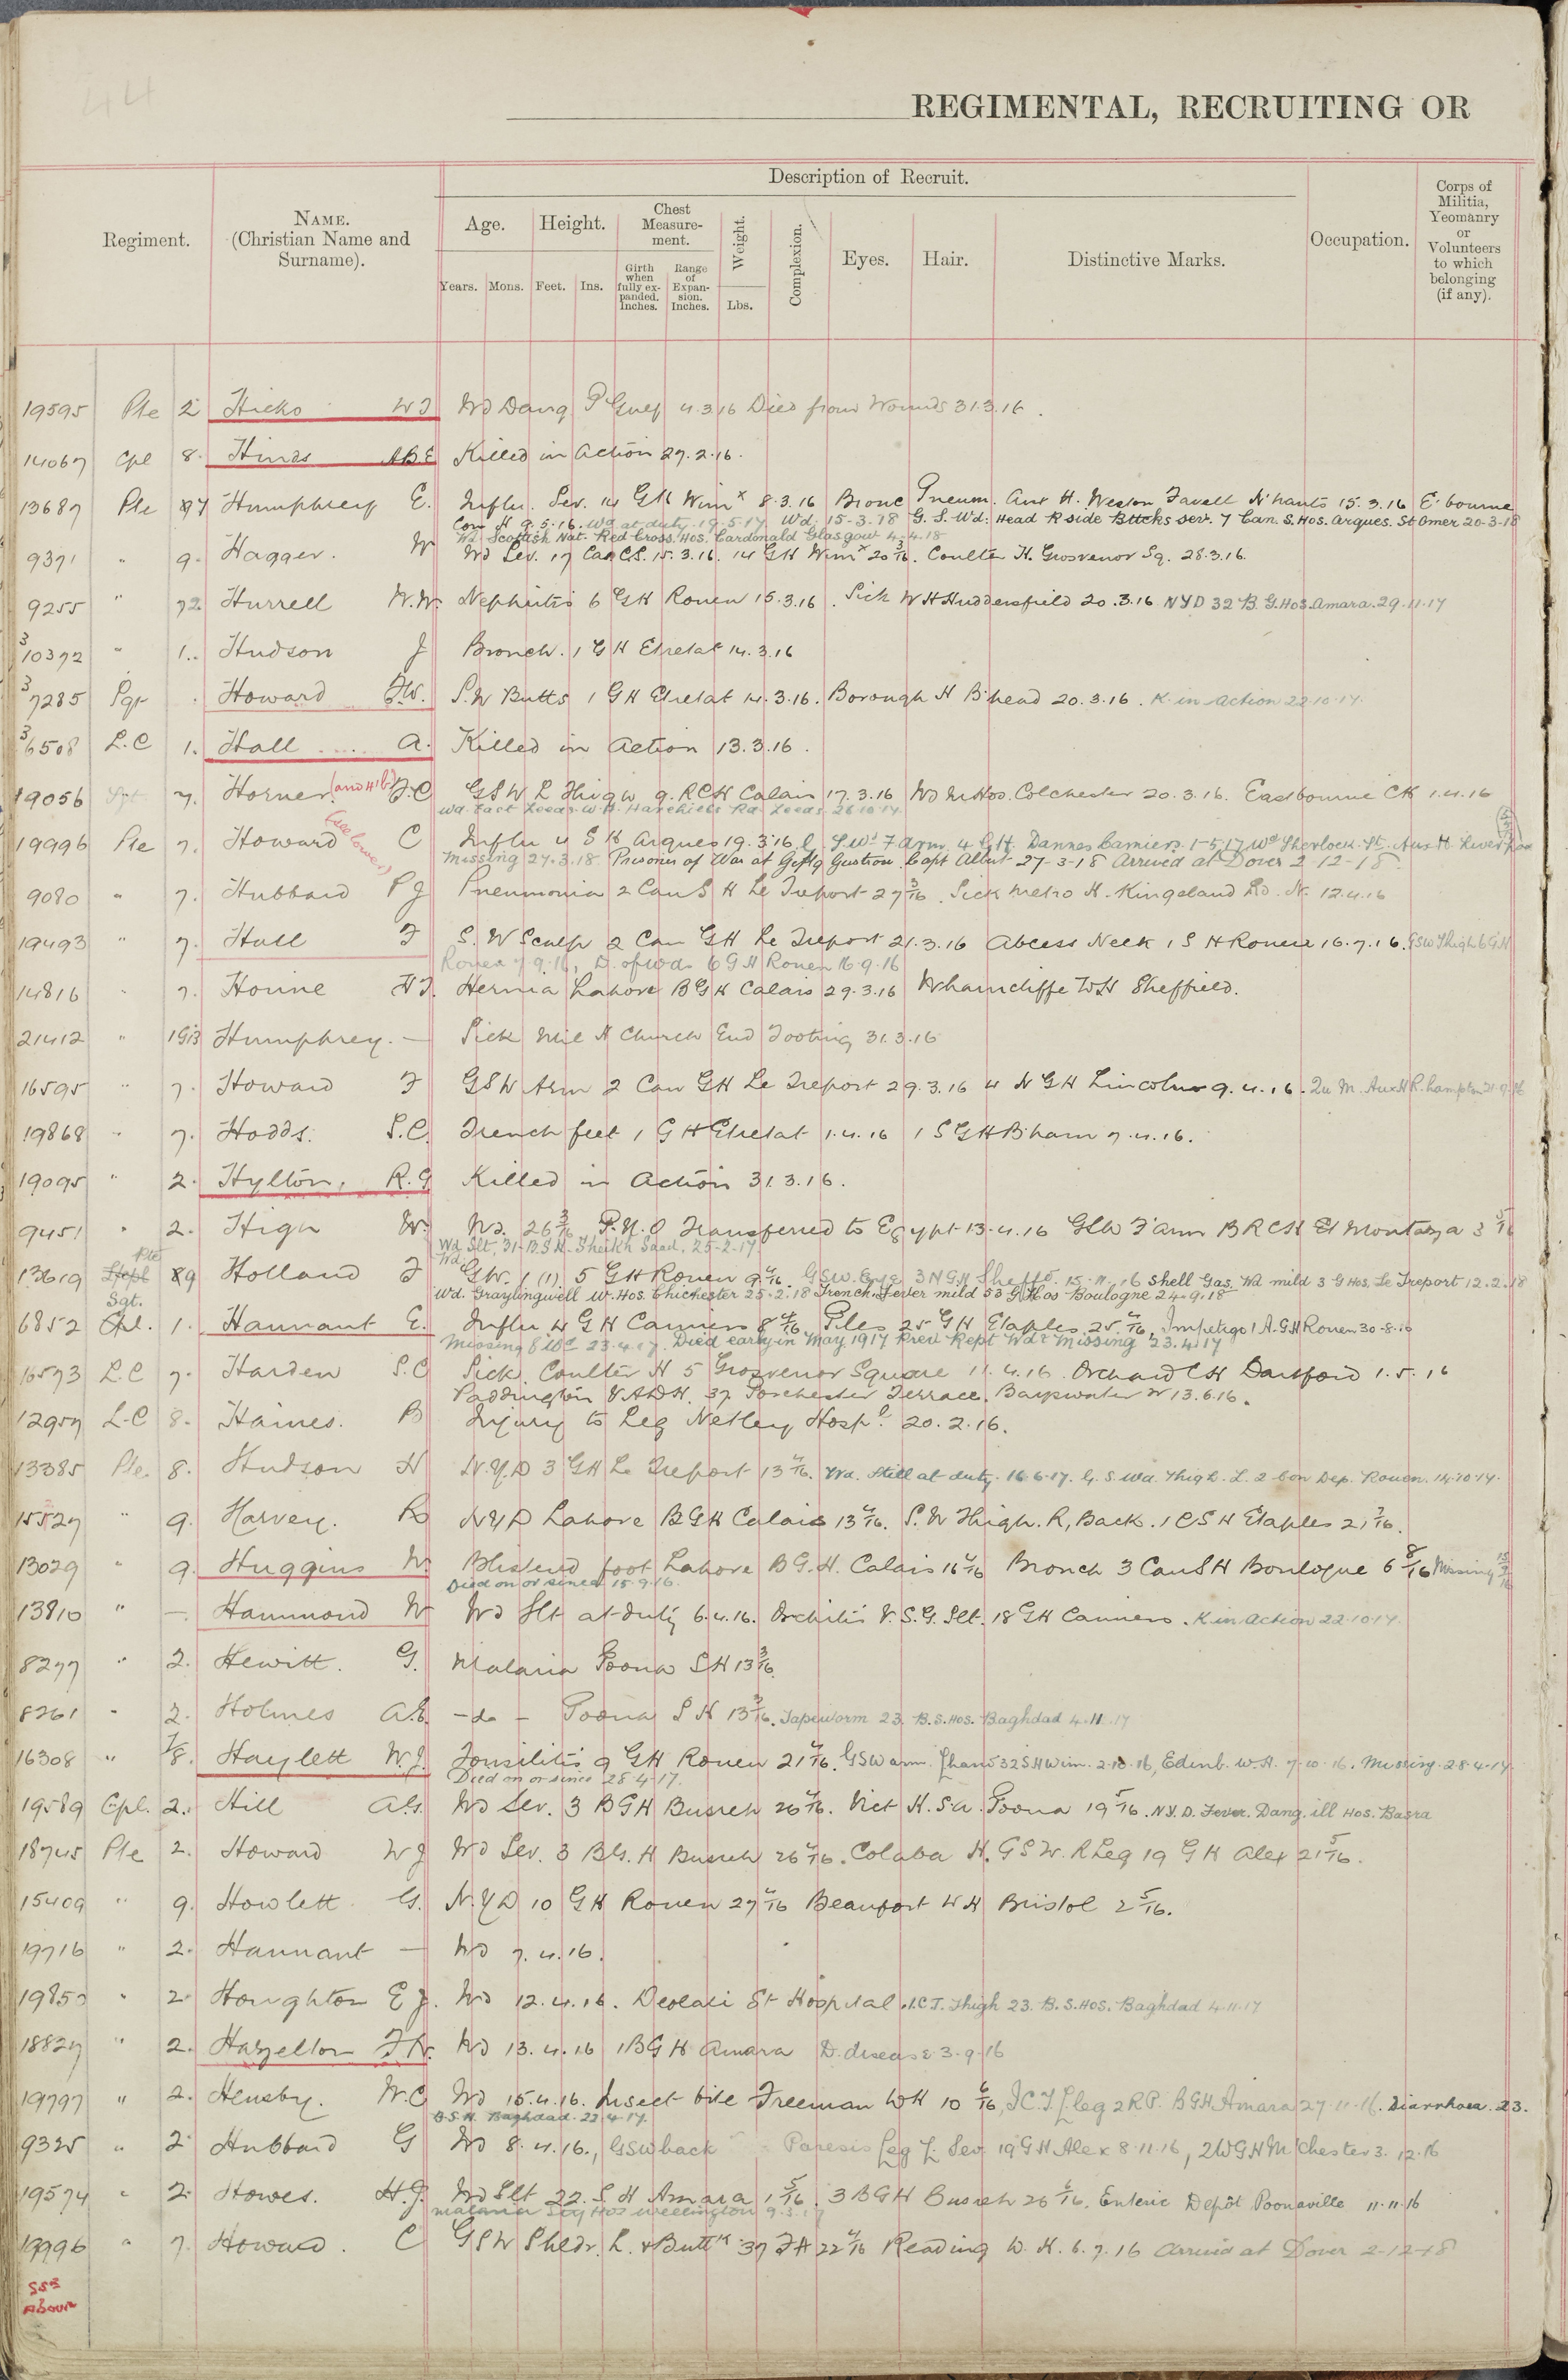 44
REGIMENTAL, RECRUITING OR
Description of Recruit.
Regiment.
NAME.
(Christian Name and
Surname).
Age.
Height.
Chest
Measure-
ment.
Weight.
Complexion.
Eyes.
Hair.
Distinctive Marks.
Occupation.
Corps of
Militia,
Yeomanry
or
Volunteers
to which
belonging
(if any).
Years.
Mons.
Feet.
Ins.
Girth
when
fully ex-
panded.
Inches.
Range
of
Expan-
sion.
Inches.
Lbs.
19595 Pte 2 Hicks WJ Wd Dang P Gulf 4.3.16 Died from Wounds 31.3.16.
14067 Cpl 8. Hinds ABE Killed in Action 27.2.16.
13687 Pte 7 Humphrey E. Influ. Sev. 14 GH Wimx 8.3.16 Bronc Pneum. Aux H. Weston Favell N'hants 15.3.16 E'bourne
Con H 9.5.16. Wd at duty 19.5.17 Wd. 15-3-18 G.S. Wd: Head R side Bttcks sev. 7 Can. S. Hos. Arques. St Omer 20-3-18
Wd Scottish Nat. Red Cross. Hos. Cardonald Glasgow 4.4.18
9371 " 9. Hagger. W Wd Sev. 17 Cas CS. 15.3.16. 14 GH Wimx 20 3/16. Coulter H. Grosvenor Sq. 28.3.16.
9255 " 72 Hurrell W.W. Nephritis 6 GH Rouen 15.3.16. Sick WH Huddersfield 20.3.16 NYD 32 B.G.Hos. Amara. 29.11.17
3/10372 " 1.. Hudson J Bronch. 1 GH Etretat 14.3.16
3/7285 Sgt . Howard F.W. S.W Butts 1 GH Etretat 14.3.16. Borough H B'head 20.3.16. K. in action 22.10.17.
3/6508 L.C 1. Hall A. Killed in Action 13.3.16.
19056 Sgt 7. Horner. (and H'16) F.C GSW L Thigh 9. RCH Calais 17.3.16 Wd M Hos. Colchester 20.3.16. Eastbourne CH 1.4.16
Wd. East Leeds W.H. Harehills Rd Leeds 26.10.17
19996 Pte 7. Howard (see lower) C Influ 4 S H Arques 19.3.16 S.Wd F'arm 4 G.H. Dannes Camiers. 1-5-17 Wd Sherlock St. Aux H Liverpool
Missing 27.3.18 Prisoner of War at Gustrow Capt Albert 27-3-18 Arrived at Dover 2-12-18
9080 " 7. Hubbard PJ Pneumonia 2 Can S H Le Treport 27 3/16. Sick Metro H. Kingsland Rd. N. 12.4.16
19493 " 7. Hall F S.W Scalp 2 Can GH Le Treport 21.3.16 Abcess Neck 1 S H Rouen 16.7.16. GSW Thigh 6 GH
Rouen 7.9.16, D. of Wds 6 GH Rouen 16.9.16
14816 " 7. Horne HJ. Hernia Lahore BGH Calais 29.3.16 Wharncliffe WH Sheffield.
21412 " 1GB Humphrey. — Sick Mil H Church End Tooting 31.3.16
16595 " 7. Howard F GSW Arm 2 Can GH Le Treport 29.3.16 4 N GH Lincoln 9.4.16. Qu M. Aux H R.hampton 21.9.16
19868 " 7. Hodds. S.C. Trench feet 1 GH Etretat 1.4.16 1 SGH B'ham 7.4.16.
19095 " 2. Hylton, R.G Killed in Action 31.3.16.
9451 " 2. High W. Wd. 26 3/16 P.U.O Transferred to Egypt 13.4.16 GSW F'arm BRCH El Montaza 3 5/16
Wd Slt, 31-B.S.H. Sheikh Saad. 25-2-17.
13619 Pte 89 Holland F Wd. GW. 1 (1). 5 GH Rouen 9 4/16. GSW. Eye 3 N.G.H Sheffd. 15.11.16 Shell Gas. Wd mild 3 G Hos. Le Treport 12.2.18
Wd. Graylingwell W. Hos. Chichester 25.2.18 Trench Fever mild 53 G Hos Boulogne 24.9.18
6852 Sgt. Cpl. 1. Hannant E. Influ 4 GH Camiers 8 4/16 Piles 25 GH Etaples 25 4/16, Impetigo 1 A.G.H Rouen 30-8-16
Missing 23.4.17. Died early in May 1917 Prev Rept Wd & Missing 23.4.17
16573 L.C 7. Harden S.C Sick Coulter H 5 Grosvenor Square 11.4.16. Orchard CH Dartford 1.5.16
Paddington V.A.D.H. 37 Porchester Terrace. Bayswater W 13.6.16.
12957 L-C 8. Haines. B Injury to Leg Netley Hospl. 20.2.16.
13385 Pte. 8. Hudson H N.Y.D 3 GH Le Treport 13 4/16. Wd. Still at duty. 16.6.17. G.S. Wd. Thigh. L. 2 Con Dep. Rouen. 14.10.17.
15527 " 9. Harvey. R NYD Lahore BGH Calais 13 4/16. S.W Thigh. R, Back. 1 CSH Etaples 21 7/16.
13029 " 9. Huggins W. Blistered foot Lahore B G.H. Calais 16 4/16 Bronch 3 Can SH Boulogne 6 8/16 Missing 15 9/16
Died on or since 15.9.16.
13810 " — Hammond W Wd Slt at duty 6.4.16. Orchitis V.S.G. Slt. 18 GH Camiers. K in action 22.10.17.
8277 " 2. Hewitt. G. Malaria Poona SH 13 3/16.
8261 " 2. Holmes A.E. -do- Poona S H 13 3/16. Tapeworm 23. B.S.Hos. Baghdad 4.11.17
16308 " 7/8. Haylett W.J. Tonsilitis 9 GH Rouen 21 4/16. GSW arm, hand 32 SH Wim. 2.10.16, Edinb. W.H. 7.10.16. Missing 28.4.17.
Died on or since 28.4.17.
19589 Cpl. 2.. Hill A.G. Wd Sev. 3 BGH Busreh 26 4/16. Vict H. S.a. Poona 19 5/16. N.Y.D. Fever. Dang. ill Hos. Basra
18745 Pte 2. Howard WJ Wd Sev. 3 BG.H Busreh 26 4/16. Colaba H. GSW. R Leg 19 GH Alex 21 5/16.
15409 " 9. Howlett G. N.Y.D 10 GH Rouen 27 4/16 Beaufort WH Bristol 2 5/16.
19716 " 2. Hannant — Wd 7.4.16.
19850 " 2 Houghton E J. Wd 12.4.16. Deolali St Hospital. I.C.T. Thigh 23. B.S.Hos. Baghdad 4.11.17
18827 " 2. Hazelton F.W. Wd 13.4.16 1BGH Amara D. disease 3.9.16
19797 " 2. Hensby. W.C Wd 15.4.16. Insect bite Freeman WH 10 6/16, I.C.T. leg 2 R.P. BGH Amara 27.11.16. Diarrhoea. 23.
B.S.H. Baghdad. 22.4.17.
9325 " 2 Hubbard G Wd 8.4.16., GSW back Paresis Leg L Sev 19 GH Alex 8.11.16, 2WGH M'Chester 3.12.16
19574 " 2 Howes. H.J. Wd Slt 22. S H Amara 1 5/16. 3 BGH Busreh 26 6/16. Enteric Depôt Poonaville 11.11.16
Malaria Hos Wellington 9.3.17
19996 " 7. Howard. C GSW Shldr. L. & Buttk 37 FA 22 4/16 Reading W.H. 6.7.16 Arrived at Dover 2-12-18
See
Above